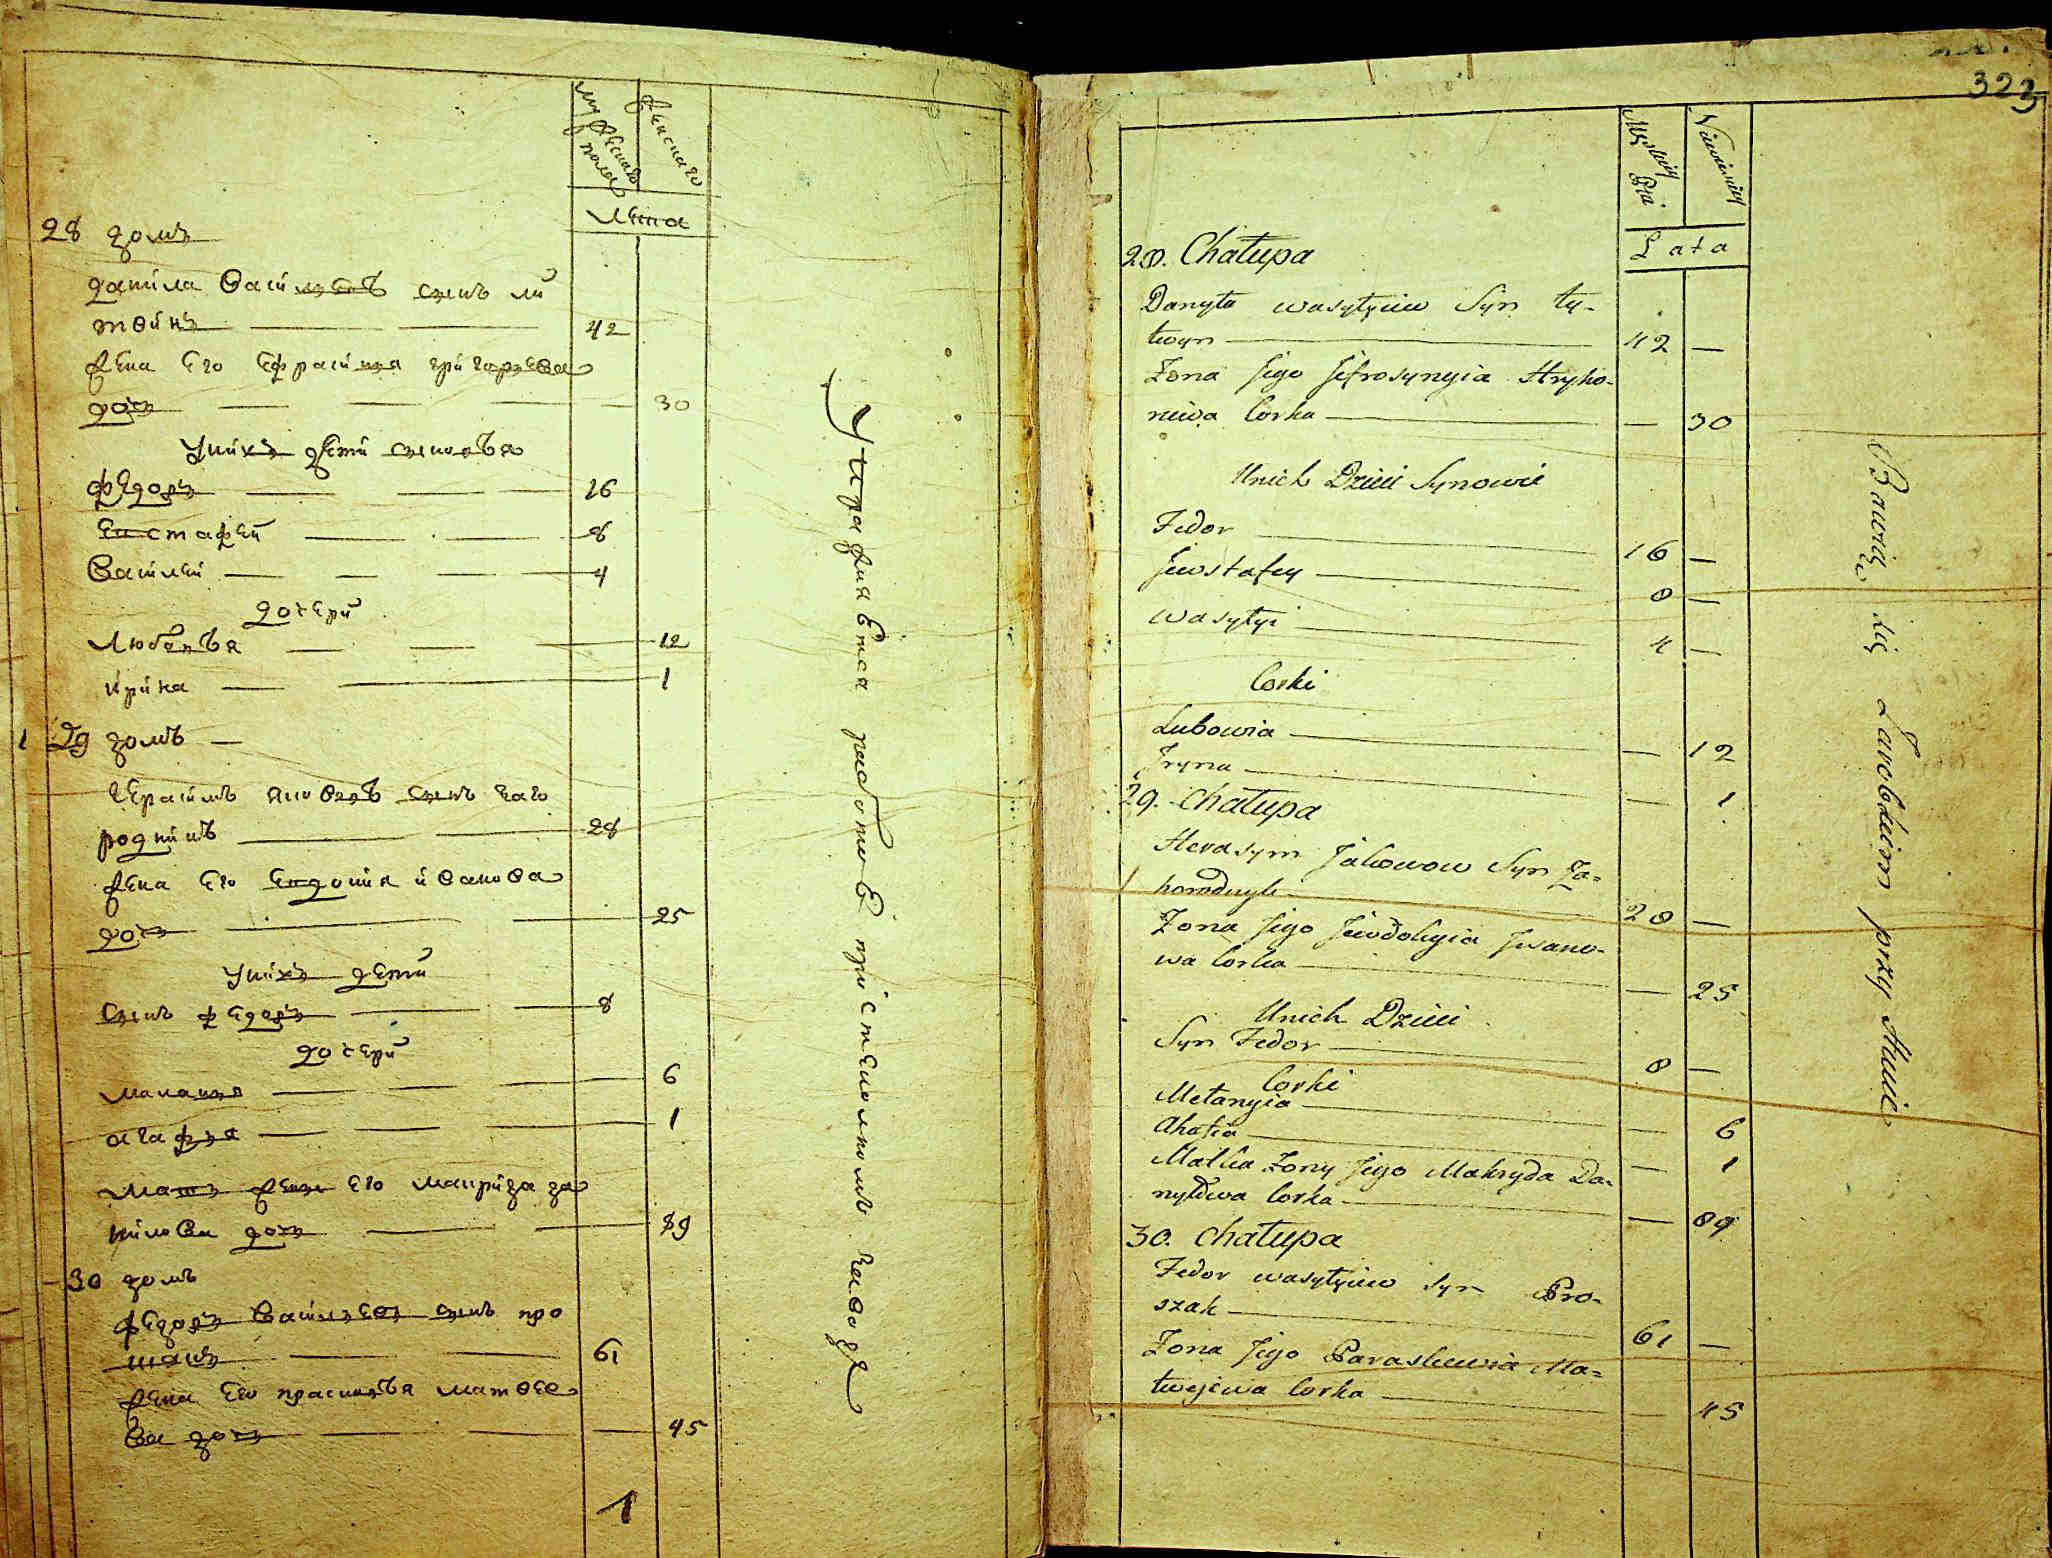 мужескаго
пола
женскаго
лѣта
28 домъ
данила васильевъ сынъ ли
твинъ 42
жена его ефросиния григорьева
дочь 30
У нихъ дети сыновья
федоръ 16
евстафей 8
василей 4
дочери
Любовья 12
ирина 1
1 29 домъ
герасимъ яковлевъ сынъ заго
роднинъ 28
жена его евдокия иванова
дочь 25
У нихъ дети
сынъ федоръ 8
дочери
маланья 6
агафья 1
мать жены его макрида да
нилова дочь 89
30 домъ
федоръ васильевъ сынъ про
шакъ 61
жена его прасковья матвее
ва дочь 45
1
Упражняется работою при стеклянномъ заводе
323
Męskiej
Płci
Niewieściej
Lata
28. Chałupa
Danyło wasyłyiw Syn Ły-
twyn 42 —
Żona Jego Jefrosynyia Hryho-
reiwa Corka — 30
Unich Dzieci Synowie
Fedor 16 —
Jewstafey 8 —
wasyłyi 4 —
Corki
Lubowia — 12
Iryna — 1
29. Chałupa
Herasym Jakowow Syn Za-
horodnyk 28 —
Żona Jego Jewdokyia Iwano-
wa Corka — 25
Unich Dzieci
Syn Fedor 8 —
Corki
Mełanyia — 6
Ahafia — 1
Matka Żony Jego Makryda Da-
nyłowa Corka — 89
30. Chałupa
Fedor wasyłyiw Syn Pro-
szak 61 —
Żona Jego Paraskewia Ma-
twejewa Corka — 45
Bawią się Zarobkiem przy Hucie